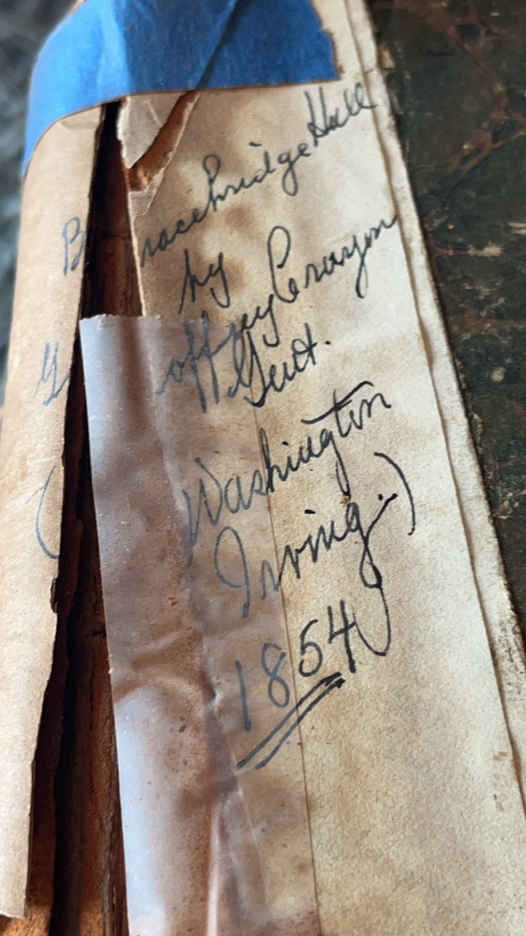 Bracebridge Hall
by
Geoffrey Crayon
Gent.
(Washington
Irving.)
1854